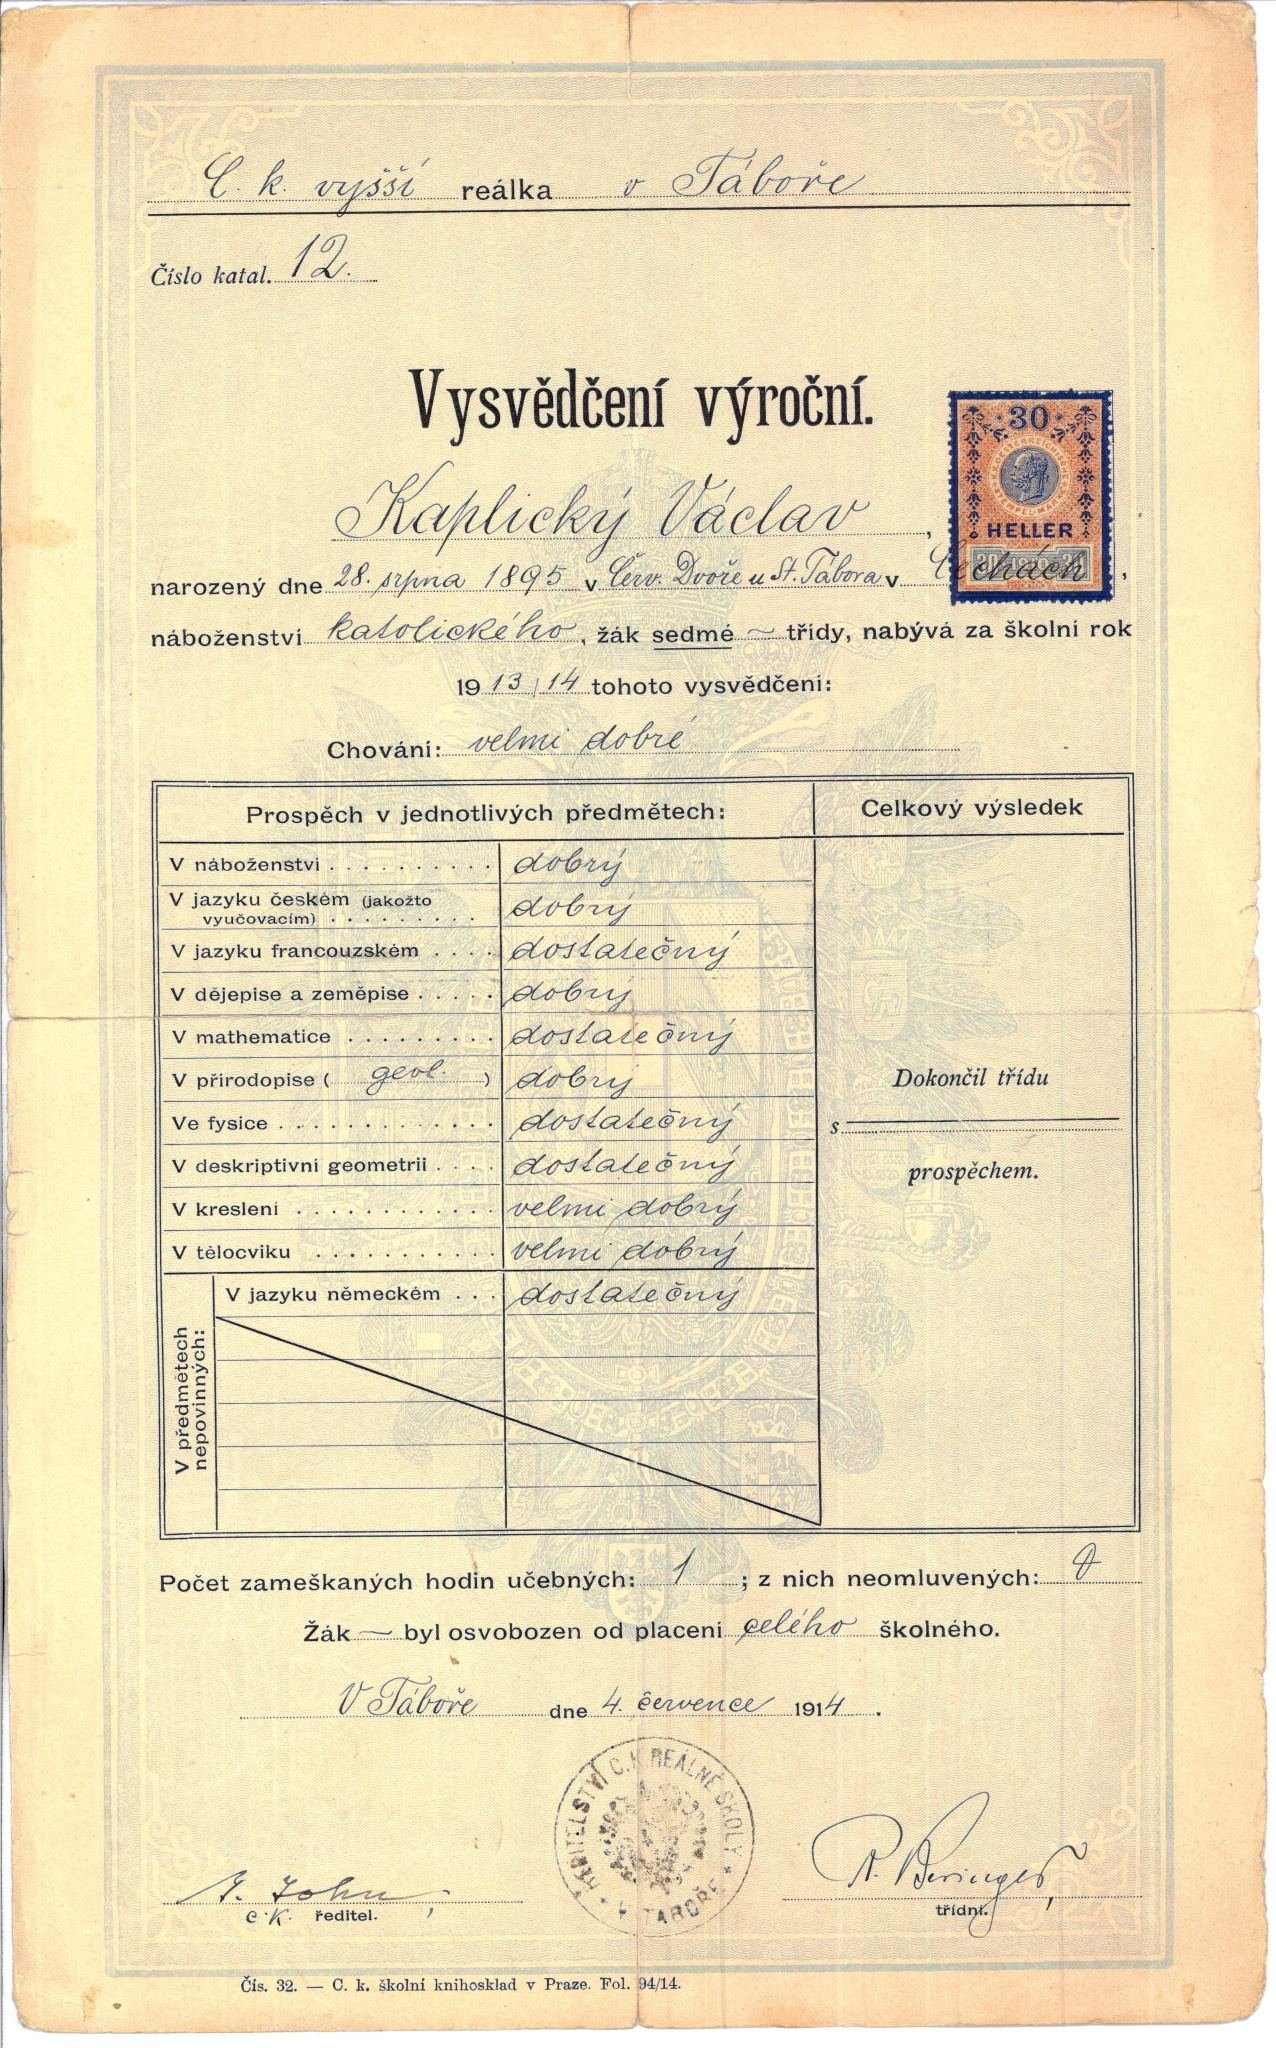 C. k. vyšší reálka v Táboře
Číslo katal. 12.
Vysvědčení výroční.
30
OESTERREICHISCHE STEMPELMARKE
HELLER
Kaplický Václav,
narozený dne 28. srpna 1895 v Červ. Dvoře u St. Tábora v Čechách,
náboženství katolického, žák sedmé třídy, nabývá za školní rok
1913/14 tohoto vysvědčení:
Chování: velmi dobré
Prospěch v jednotlivých předmětech: Celkový výsledek
V náboženství dobrý
V jazyku českém (jakožto
vyučovacím) dobrý
V jazyku francouzském dostatečný
V dějepise a zeměpise dobrý
V mathematice dostatečný
V přírodopise (geol.) dobrý
Ve fysice dostatečný
V deskriptivní geometrii dostatečný
V kreslení velmi dobrý
V tělocviku velmi dobrý
Dokončil třídu
s
prospěchem.
V předmětech
nepovinných:
V jazyku německém dostatečný
Počet zameškaných hodin učebných: 1; z nich neomluvených: 0
Žák byl osvobozen od placení celého školného.
V Táboře dne 4. července 1914.
ŘEDITELSTVÍ C. K. REÁLNÉ ŠKOLY V TÁBOŘE
John, R. Beringer,
c. k. ředitel. třídní.
Čís. 32. — C. k. školní knihosklad v Praze. Fol. 94/14.